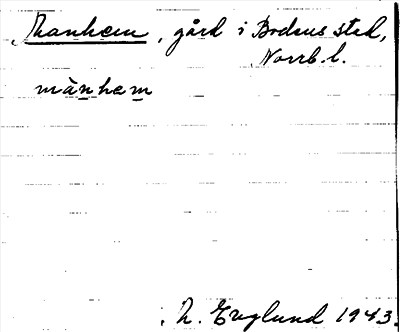 Manhem, gård i Bodens stad,
Norrb. l.
mànhem
N. Englund 1943.